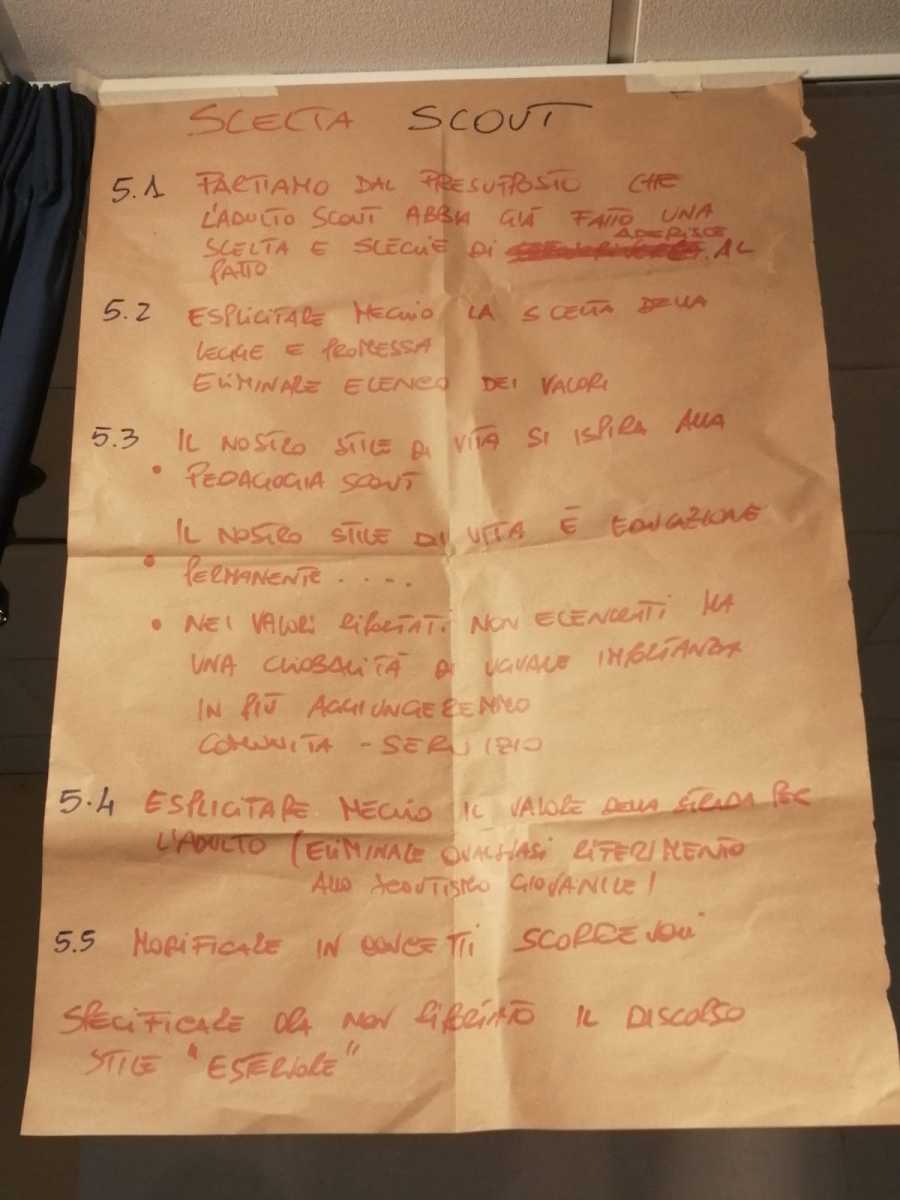 SCELTA SCOUT
5.1 PARTIAMO DAL PRESUPPOSTO CHE
L'ADULTO SCOUT ABBIA GIÀ FATTO UNA
SCELTA E SCEGLIE DI ADERISCE AL
PATTO
5.2 ESPLICITARE MEGLIO LA SCELTA DELLA
LEGGE E PROMESSA
ELIMINARE ELENCO DEI VALORI
5.3 IL NOSTRO STILE DI VITA SI ISPIRA ALLA
• PEDAGOGIA SCOUT
IL NOSTRO STILE DI VITA È EDUCAZIONE
• PERMANENTE ....
• NEI VALORI RIPORTATI NON ELENCATI MA
UNA GLOBALITÀ DI UGUALE IMPORTANZA
IN PIÙ AGGIUNGEREMMO
COMUNITÀ - SERVIZIO
5.4 ESPLICITARE MEGLIO IL VALORE DELLA STRADA PER
L'ADULTO (ELIMINARE QUALSIASI RIFERIMENTO
ALLO SCOUTISMO GIOVANILE)
5.5 MODIFICARE IN CONCETTI SCORREVOLI
SPECIFICARE ORA NON RIPORTATO IL DISCORSO
STILE "ESTERIORE"